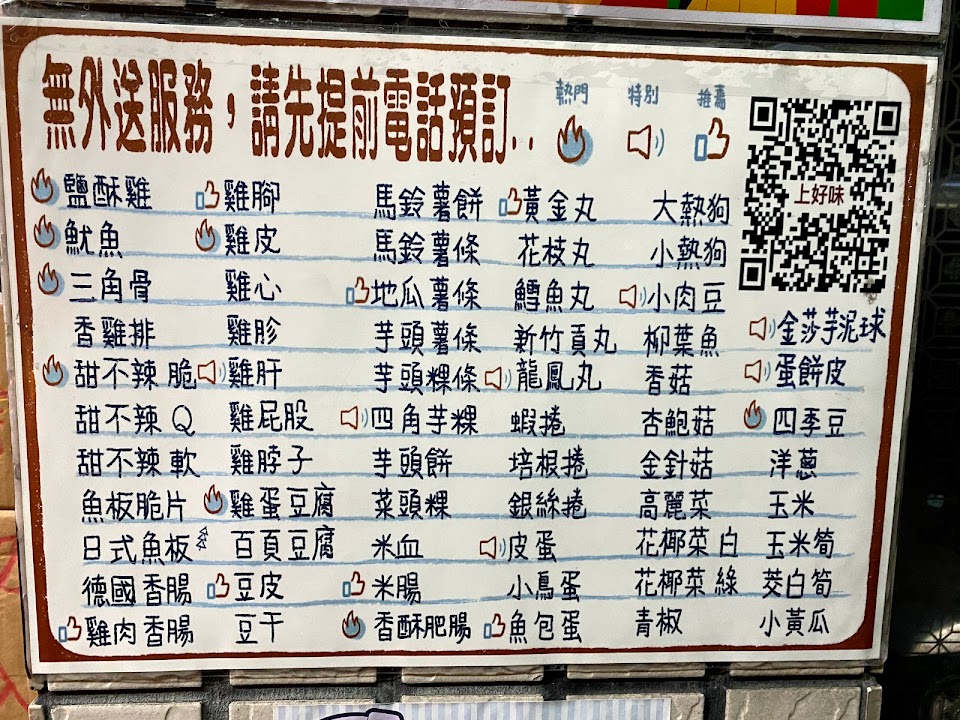 無外送服務，請先提前電話預訂..
熱門 特別 推薦
上好味
鹽酥雞 雞腳 馬鈴薯餅 黃金丸 大熱狗
魷魚 雞皮 馬鈴薯條 花枝丸 小熱狗
三角骨 雞心 地瓜薯條 鱈魚丸 小肉豆
香雞排 雞胗 芋頭薯條 新竹貢丸 柳葉魚 金莎芋泥球
甜不辣脆 雞肝 芋頭粿條 龍鳳丸 香菇 蛋餅皮
甜不辣Q 雞屁股 四角芋粿 蝦捲 杏鮑菇 四季豆
甜不辣軟 雞脖子 芋頭餅 培根捲 金針菇 洋蔥
魚板脆片 雞蛋豆腐 菜頭粿 銀絲捲 高麗菜 玉米
日式魚板 百頁豆腐 米血 皮蛋 花椰菜白 玉米筍
德國香腸 豆皮 米腸 小鳥蛋 花椰菜綠 茭白筍
雞肉香腸 豆干 香酥肥腸 魚包蛋 青椒 小黃瓜